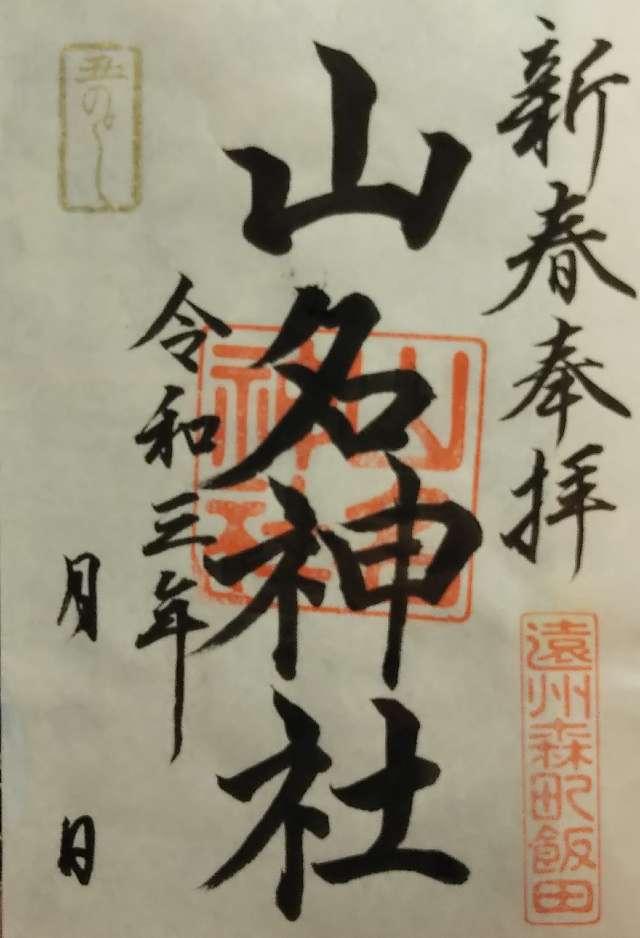 新春奉拝
遠州森町飯田
山名神社
山名神社
令和三年
月　日
丑のとし